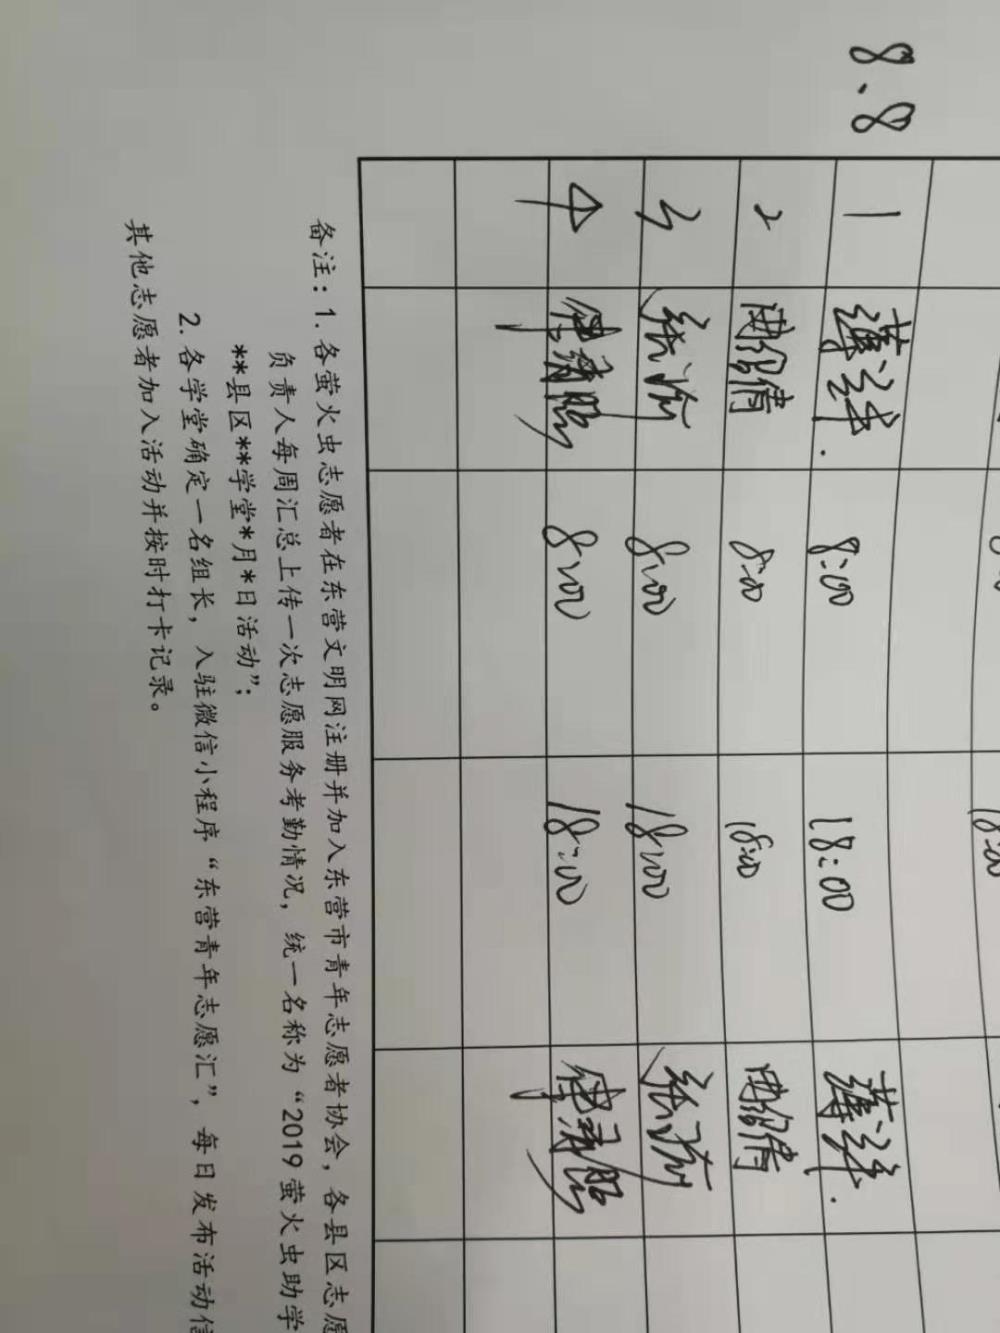 8.8
18:00
1 薄泽 8:00 18:00 薄泽
2 曲绍倩 8:00 18:00 曲绍倩
3 8:00 18:00
4 8:00 18:00
备注：1.各萤火虫志愿者在东营文明网注册并加入东营市青年志愿者协会，各县区志愿
负责人每周汇总上传一次志愿服务考勤情况，统一名称为“2019萤火虫助学
**县区**学堂*月*日活动”；
2.各学堂确定一名组长，入驻微信小程序“东营青年志愿汇”，每日发布活动信
其他志愿者加入活动并按时打卡记录。